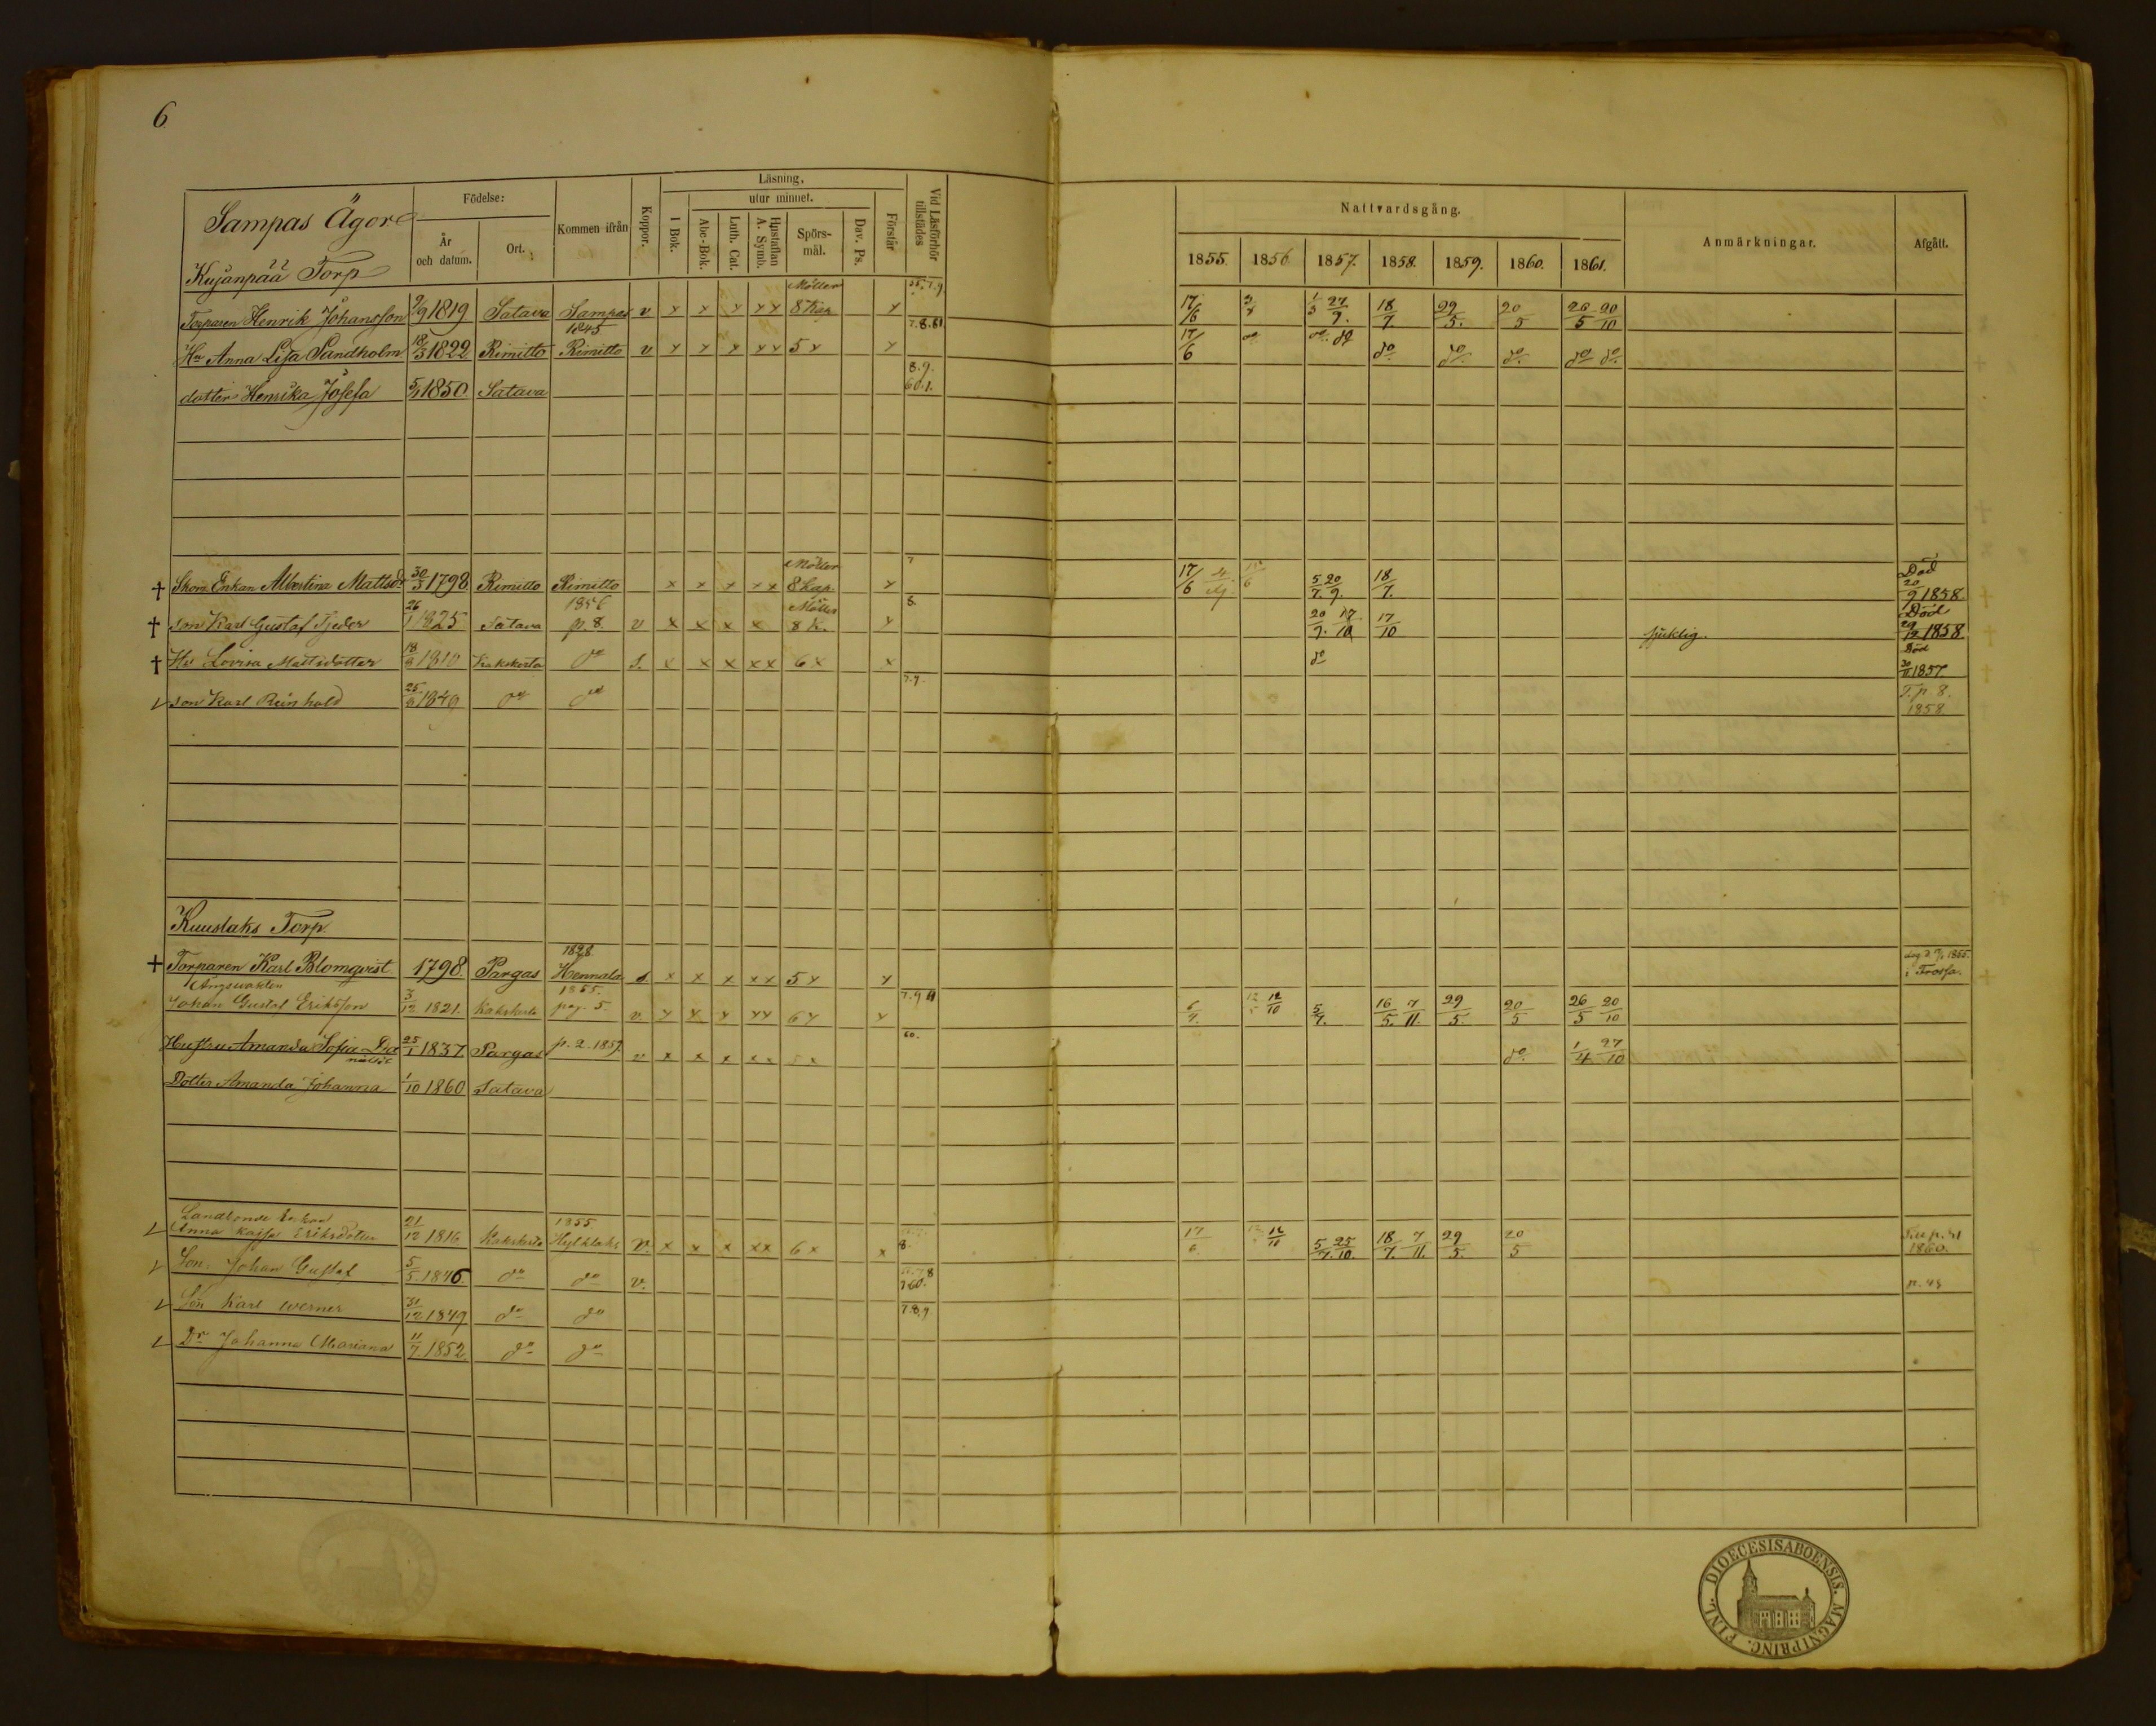 6
Sampas Ägor
Kujanpää Torp
Födelse:
År och datum.
Ort.
Kommen ifrån
Koppor.
Läsning,
utur minnet.
I Bok.
Abc-Bok.
Luth. Cat.
Hustaflan A. Symb.
Spörs-mål.
Dav. Ps.
Förstår
Vid Läsförhör tillstädes
Nattvardsgång.
1855. 1856 1857. 1858. 1859. 1860. 1861.
Anmärkningar.
Afgått.
Möller
Torparen Henrik Johansson 9/9 1819 Satava Sampas v x x x x x 8 Kap x 17/6 27/9. 18/7. 29/5. 20/5 26/5 20/10
1845 7.8.61
Hu Anna Lisa Sandholm 18/3 1822 Rimitto Rimitto v x x x x x 5 x x 17/6 do do do do do do
8.9.
dotter Henrika Josefa 5/1 1850 Satava 60.1.
Möller 7
† Enkan Albertina Mattsdr 30/3 1798 Rimitto Rimitto x x x x x 8 kap. x 17/6 5/7. 20/9. 18/7. Död 20/9 1858.
1856 Möller 8.
† son Karl Gustaf Tjeder 26/1 1825 Satava p. 8. v x x x x 8 K. x 20/9. 17/10 17/10 sjuklig. Död 29/12 1858
† Hu Lovisa Mattsdotter 18/8 1810 Kakskerta do s. x x x x x 6 x x do Död 30/11 1857
7.9.
son Karl Reinhold 25/8 1849 do do T. p. 8. 1858
Kuustaks Torp
1828.
† Torparen Karl Blomqvist 1798. Pargas Hennala s x x x x x 5 x x i Trossa.
1855. 7.9 61
Johan Gustaf Eriksson 3/12 1821. Kakskerta pag. 5. v. x x x x x 6 x x 6/7. 12/10 5/7. 16/5. 7/11. 29/5. 20/5 26/5 20/10
60.
Hustru Amanda Sofia 25/1 1837. Pargas p. 2. 1859. v x x x x x 5 x do 1/4 27/10
Dotter Amanda Johanna 1/10 1860 Satava
Landbonde Enkan 1855
Anna Kajsa Eriksdotter 21/12 1816 Kakskerta Hylklaks v. x x x x x 6 x x 8. 17/6 12/10 5/7. 25/10. 18/7. 7/11. 29/5. 20/5 1860.
Son. Johan Gustaf 5/5. 1846 do do v. 60.
Son Karl Werner 31/12 1849 do do 7.8.9
Dr Johanna Mariana 11/7. 1852. do do
FINL. DIOECESIS ABOENSIS. MAGNI PRINC.